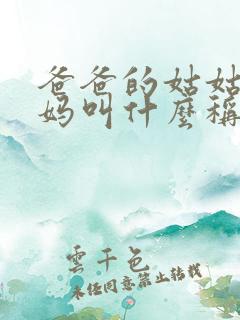 爸爸的姑姑
妈叫什麽称
雲千色
未经同意禁止转载